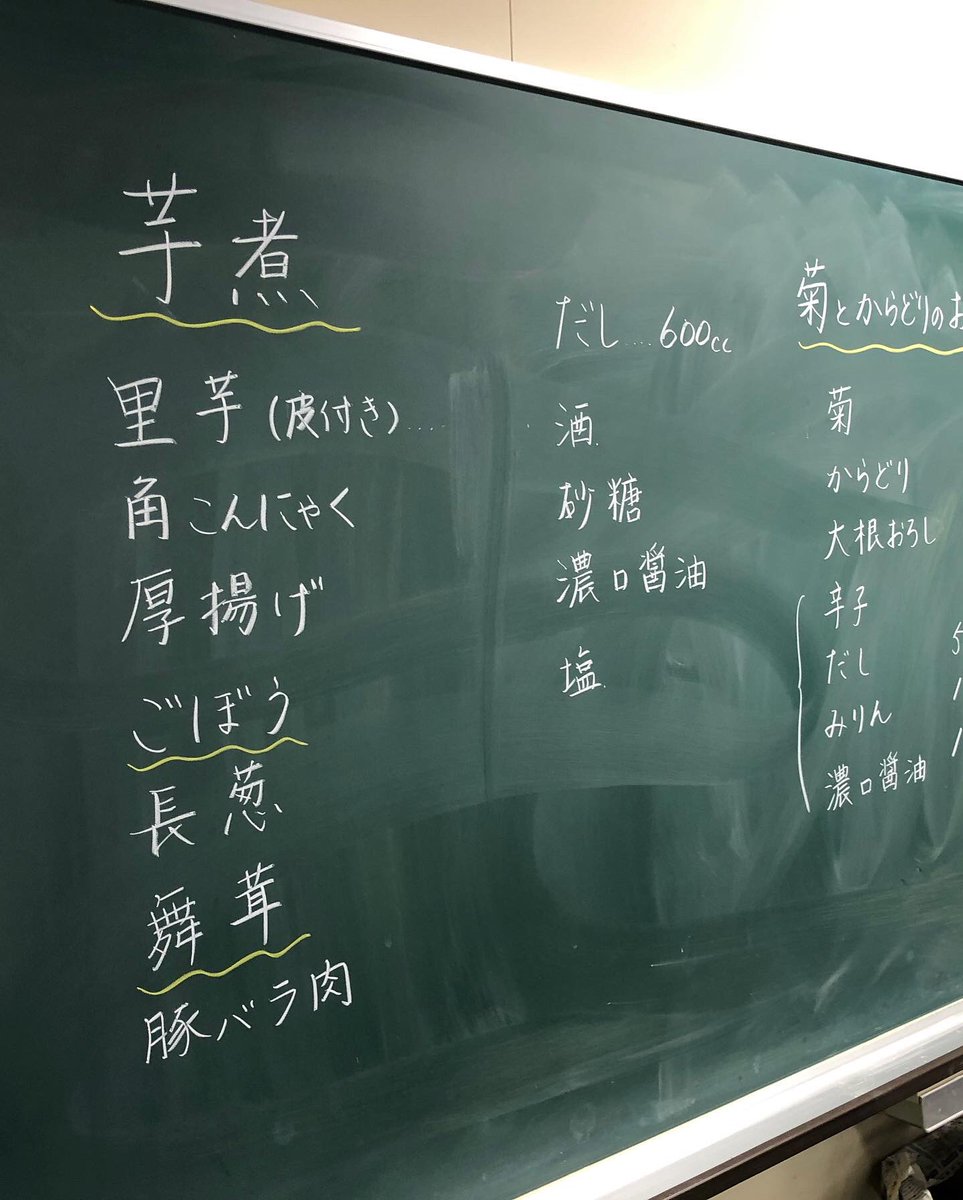 芋煮
里芋(皮付き)……
角こんにゃく
厚揚げ
ごぼう
長葱
舞茸
豚バラ肉
だし…600cc
酒
砂糖
濃口醤油
塩
菊とからどりのお
菊
からどり
大根おろし
辛子
だし
みりん
濃口醤油